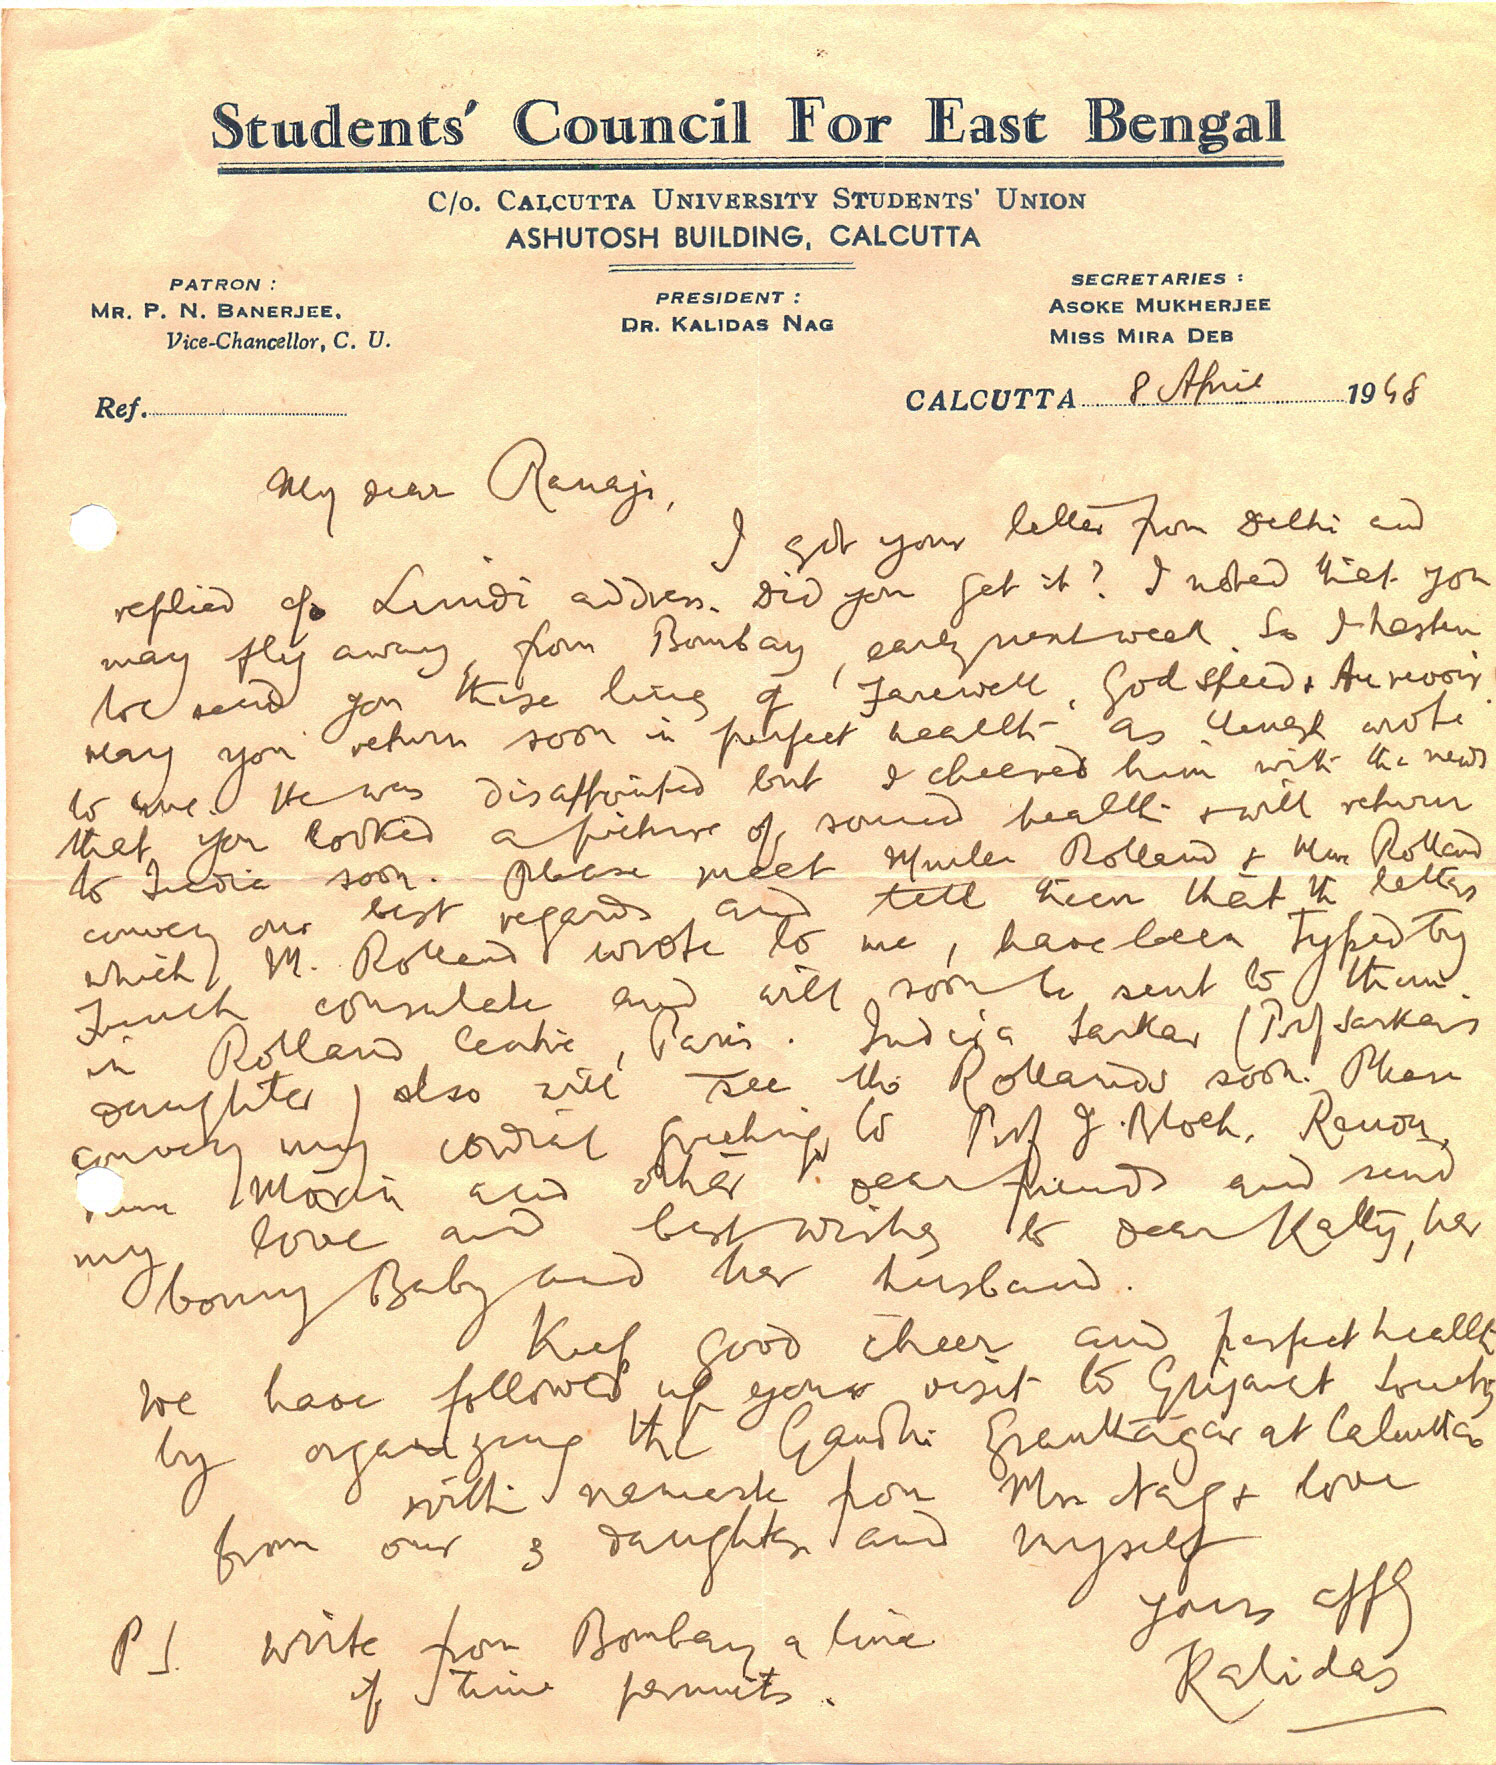 Students' Council For East Bengal
C/o. CALCUTTA UNIVERSITY STUDENTS' UNION
ASHUTOSH BUILDING, CALCUTTA
PATRON :
MR. P. N. BANERJEE,
Vice-Chancellor, C. U.
PRESIDENT :
DR. KALIDAS NAG
SECRETARIES :
ASOKE MUKHERJEE
MISS MIRA DEB
Ref.
CALCUTTA 8 April 1948
My dear Ranaji,
I got your letter from Delhi and
replied c/o address. Did you get it? I noted that you
may fly away from Bombay, early next week. So I hasten
to send you these lines of Farewell, God speed & Au revoir!
May you return soon in perfect health as wrote
to me. He was disappointed but I cheered him with the news
that you looked a picture of sound health & will return
to India soon. Please meet Rolland & Mme Rolland
convey our best regards and tell them that the letters
which M. Rolland wrote to me, have been typed by
French consulate and will soon be sent to them.
in Rolland Centre, Paris. Indira Sarkar (Prof Sarkar's
daughter) also will see the Rollands soon. Please
convey my cordial greetings to Prof J. Bloch, Renou,
Morin and other dear friends and send
my love and best wishes to dear Katty, her
bonny Baby and her husband.
Keep good cheer and perfect health
We have followed up your visit to Gujarat Society
by organizing the Gandhi Granthagar at Calcutta
with namaste from Mrs Nag & love
from our 3 daughters and myself
yours affly
Kalidas
P.S. write from Bombay a line
if time permits.